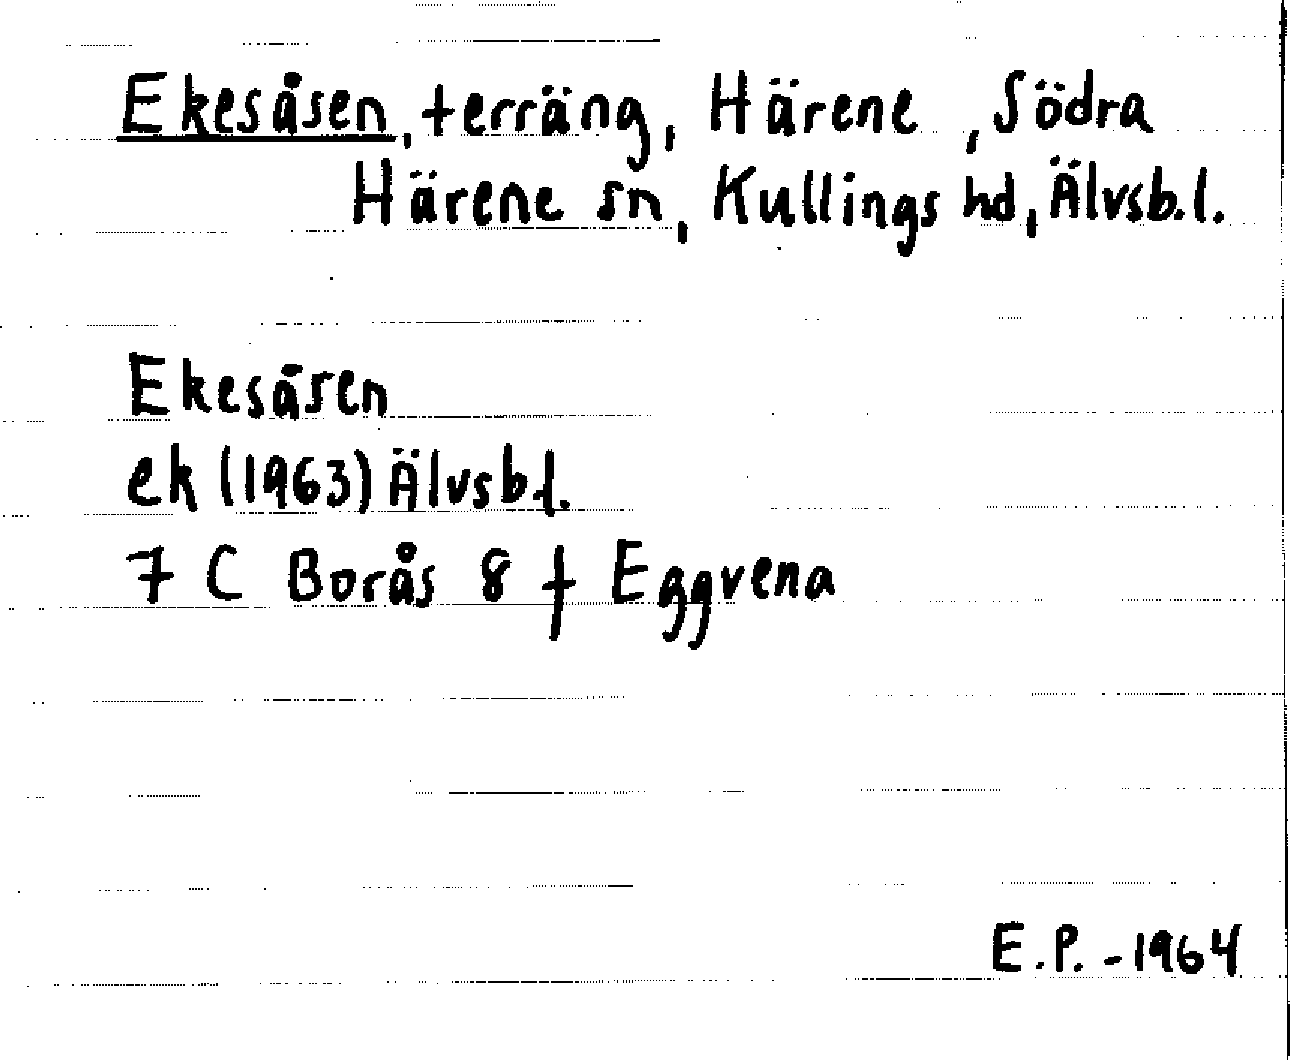 Ekesåsen, terräng, Härene, Södra
Härene sn, Kullings hd, Älvsb.l.
Ekesåsen
ek (1963) Älvsb.l.
7 C Borås 8 f Eggvena
E.P. - 1964